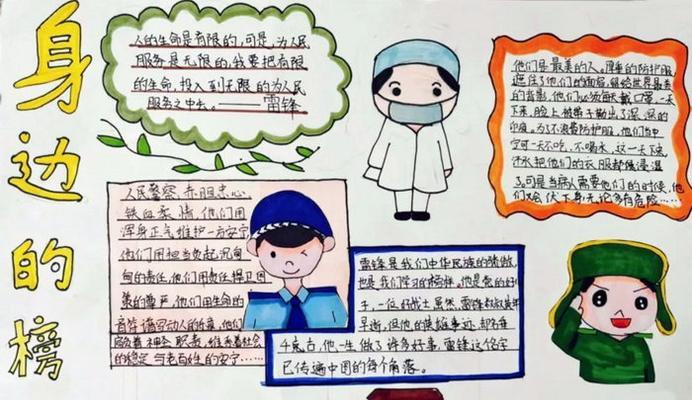 身边的榜
人的生命是有限的,可是,为人民
服务是无限的,我要把有限
的生命,投入到无限的为人民
服务之中去。——雷锋
他们是最美的人。厚重的防护服
遮住了他们的面容,留给世界最美
的背影,他们必须每天戴口罩,一天
下来,脸上被带子勒出了深深的
印痕,为了不浪费防护服,他们当中
宁可一天不吃,不喝水,这一天下来,
汗水把他们的衣服都浸湿
了。可是当病人需要他们的时候,他
们又会伏下身,无论多有危险……
人民警察,赤胆忠心,
铁血柔情,他们用
浑身正气维护一方安宁,
他们用担当负起沉甸
甸的责任,他们用责任捍卫国
的尊严,他们用生命的
音符谱写动人的乐章,他们
神圣职责,维系着社会
的稳定与老百姓的安宁……
雷锋是我们中华民族的骄傲,
也是我们学习的榜样。他是党的好儿
子,一位好战士虽然,雷锋叔叔英年
早逝,但他的英雄事迹,却流传
千百,他一生做了许多好事,雷锋这个字
已传遍中国的每个角落。